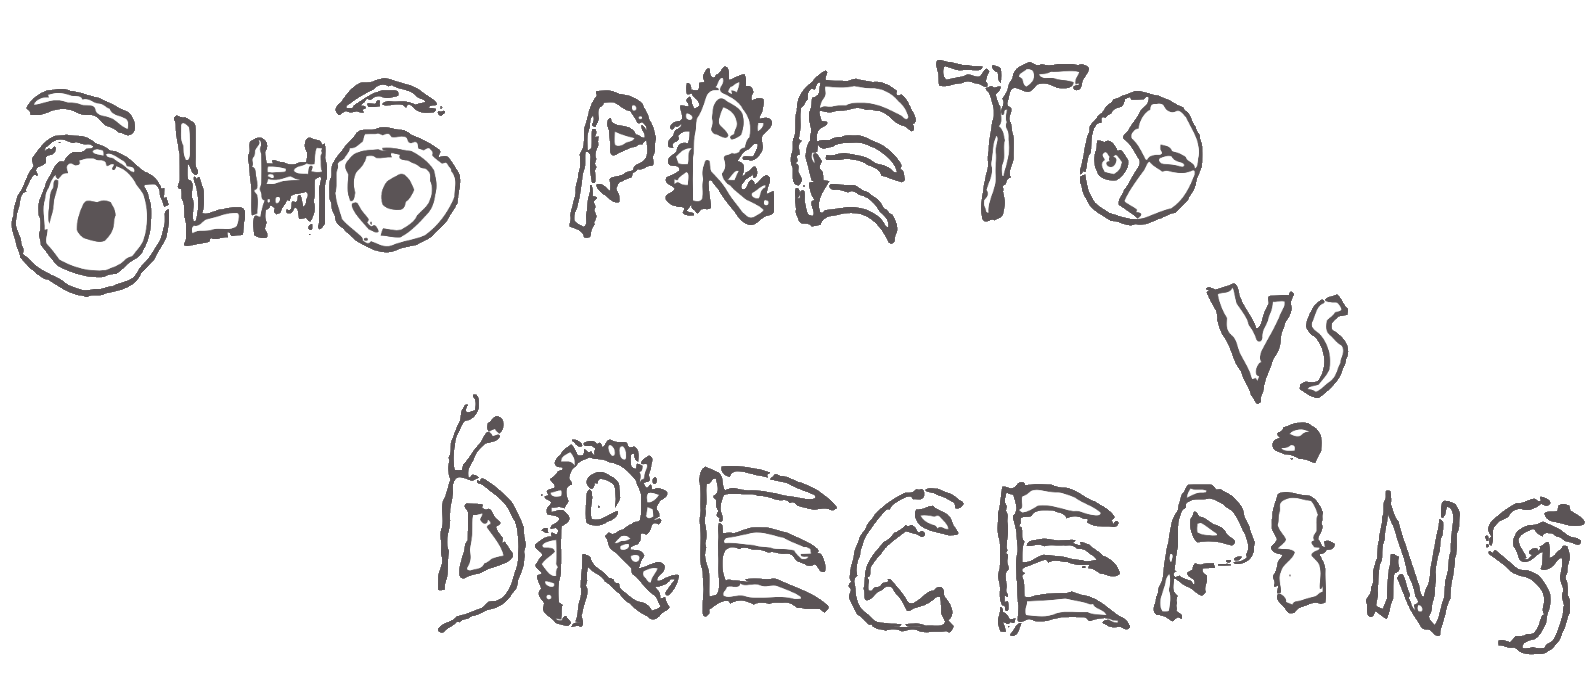 OLHO PRETO
VS
DRECEPiNS